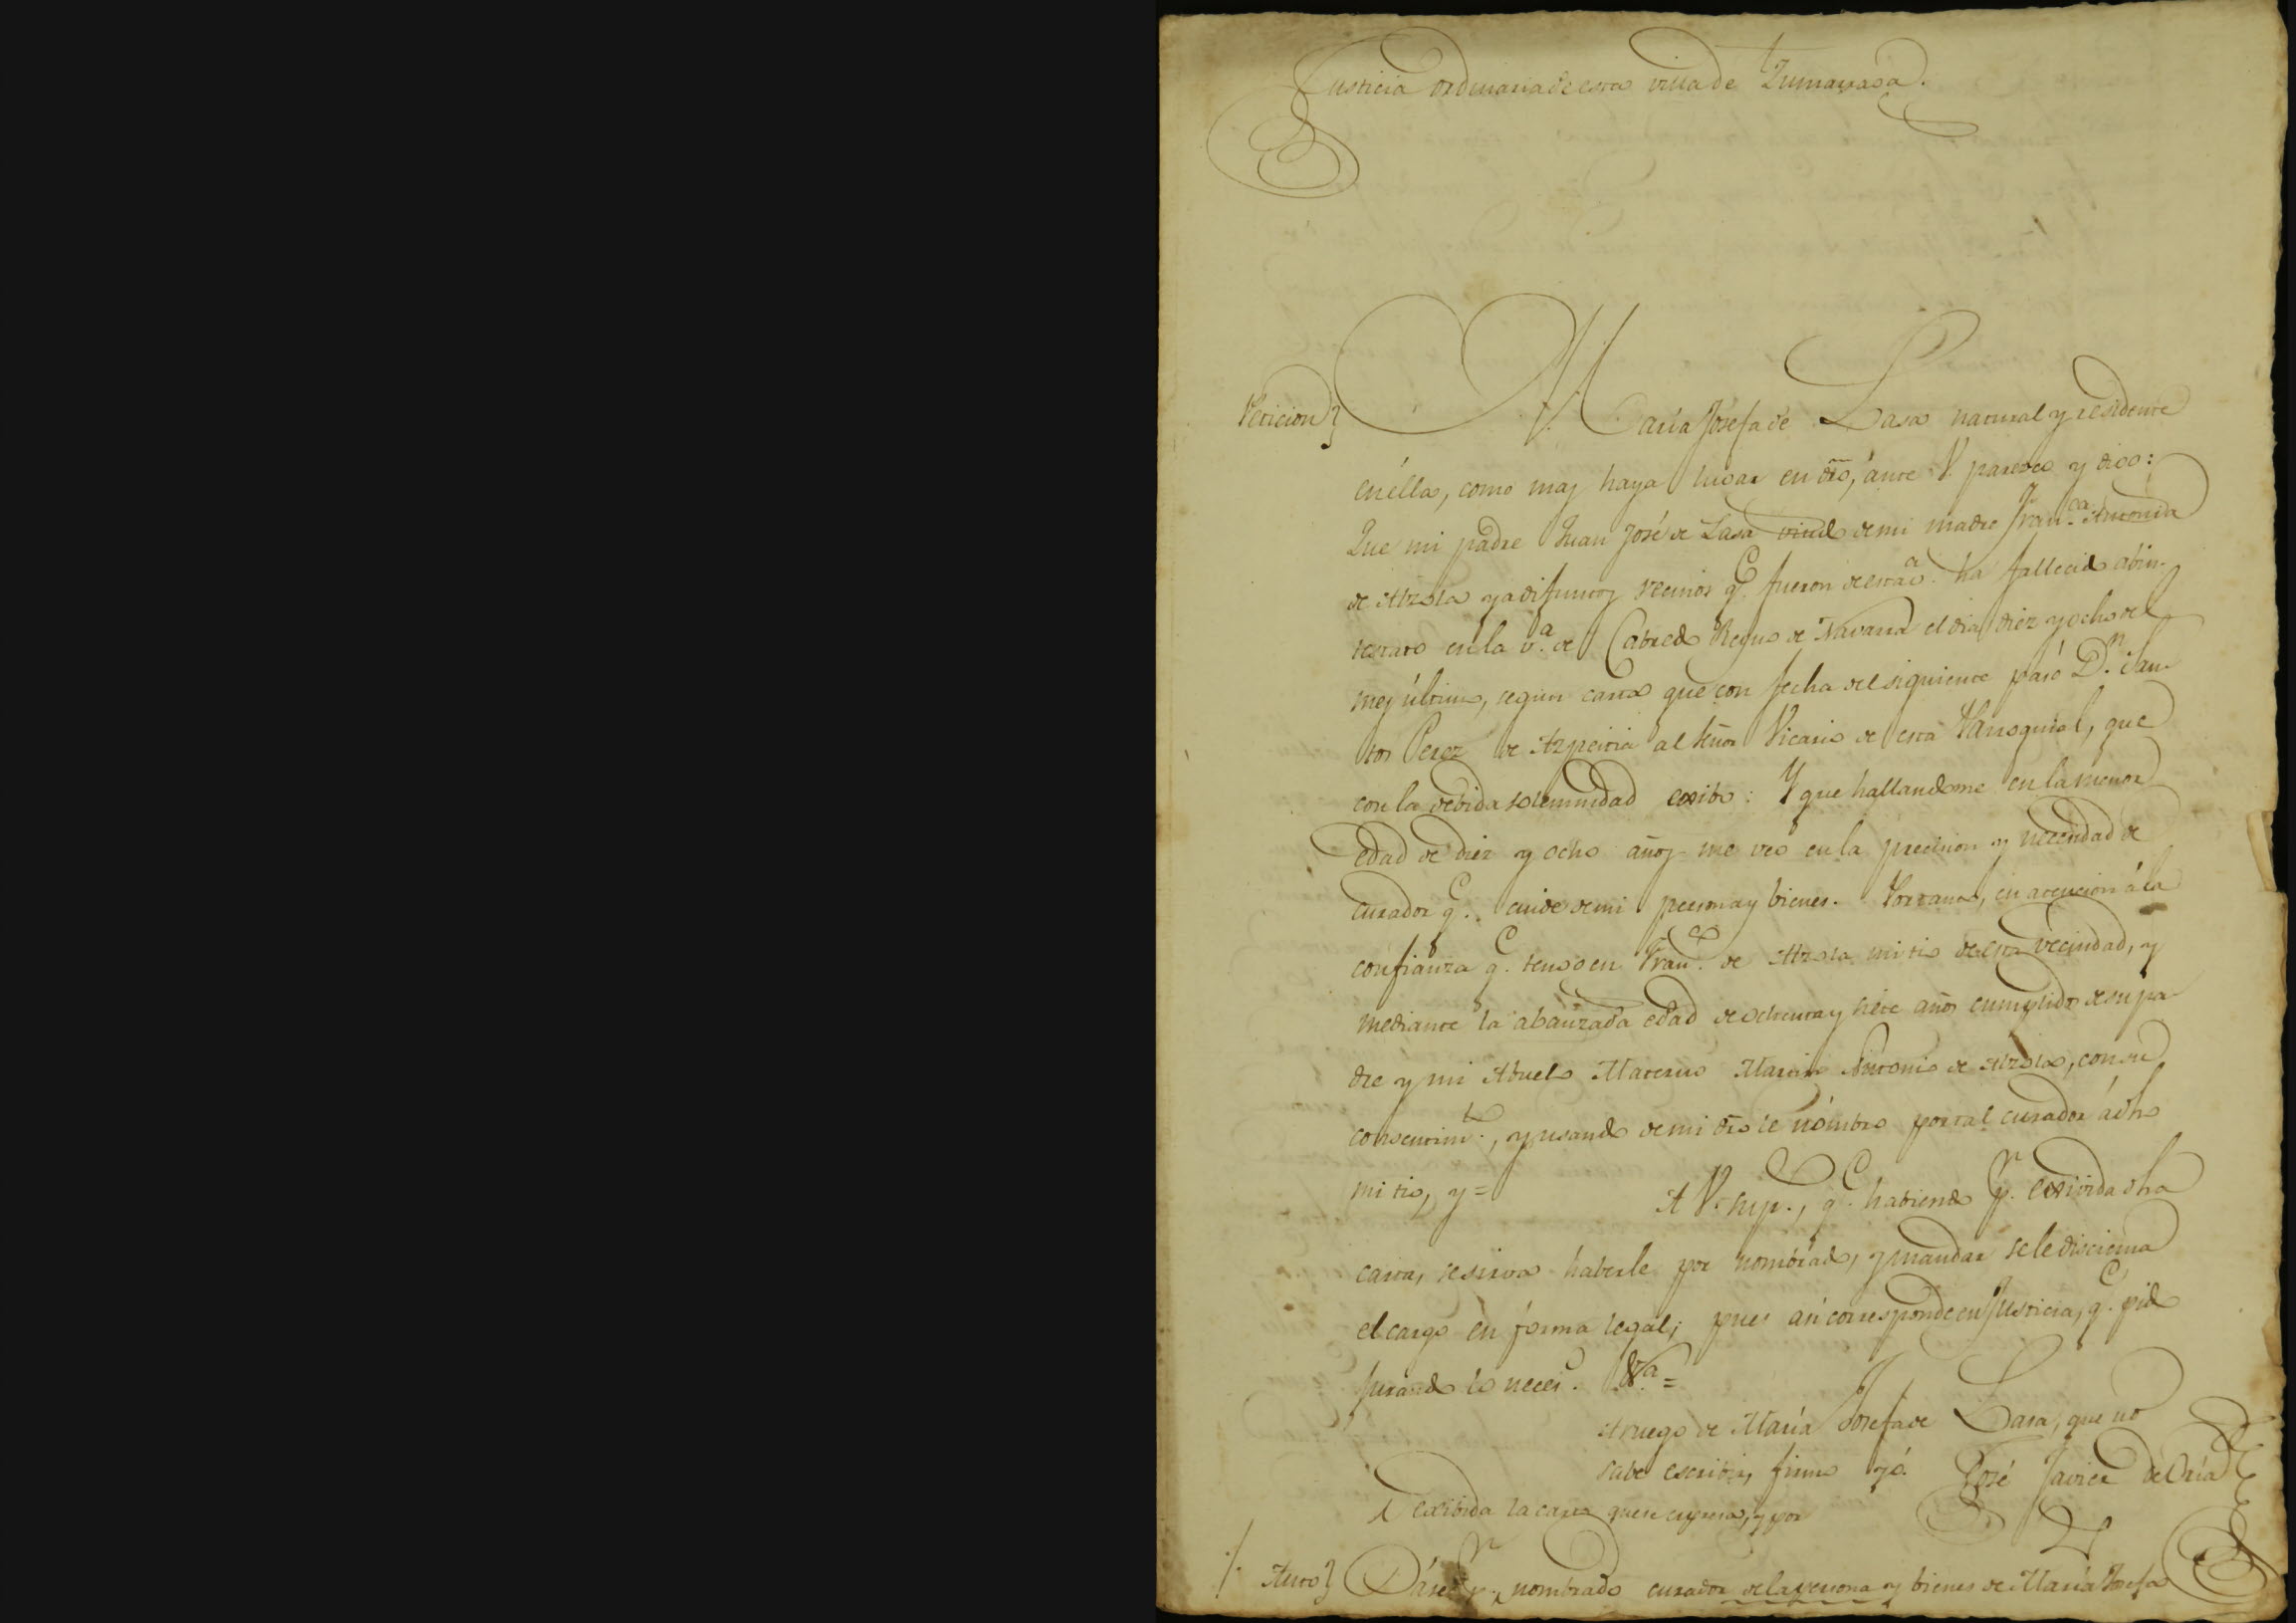 Justicia ordinaria de esta villa de Zumarraga.
Peticion} María Josefa de Lasa natural y residente
en élla, como mas haya lugar en dro, ánte V. paresco y digo:
Que mi padre Juan José de Lasa viudo de mi madre Fran.ca Antonia
de Alzola ya difuntos vecinos q.e fueron de esta v.a ha fallecido abin-
testato en la v.a de Cabredo Reyno de Navarra el dia diez y ocho del
mes último, segun carta que con fecha del siguiente pasó D.n San-
tos Perez de Azpeitia al señor Vicario de esta Parroquial, que
con la debida solemnidad exibo: Y que hallandome en la menor
edad de diez y ocho años me veo en la precision y necesidad de
curador q.e cuide de mi persona y bienes. Portanto, en atencion á la
confianza q.e tengo en Fran.co de Alzola mi tio de esta vecindad, y
mediante la abanzada edad de ochenta y siete años cumplidos de su pa-
dre y mi Abuelo Materno Martin Antonio de Alzola, con su
consentim.to, y usando de mi dro le nómbro por tal curador á dho
mi tio, y =
A V. sup.co, q.e habiendo p.r exsivida dha
carta, se sirva haberle por nombrado, y mandar se le discierna
el cargo en fórma legal; pues asi corresponde en Justicia, q.e pido
jurando lo neces.o &.a =
A ruego de María Josefa de Lasa, que no
sabe escribir, firmo yó. José Javier de Oria
exibida la carta que se expresa, y por
Auto} Dáse p.r nombrado curador de la persona y bienes de María Josefa